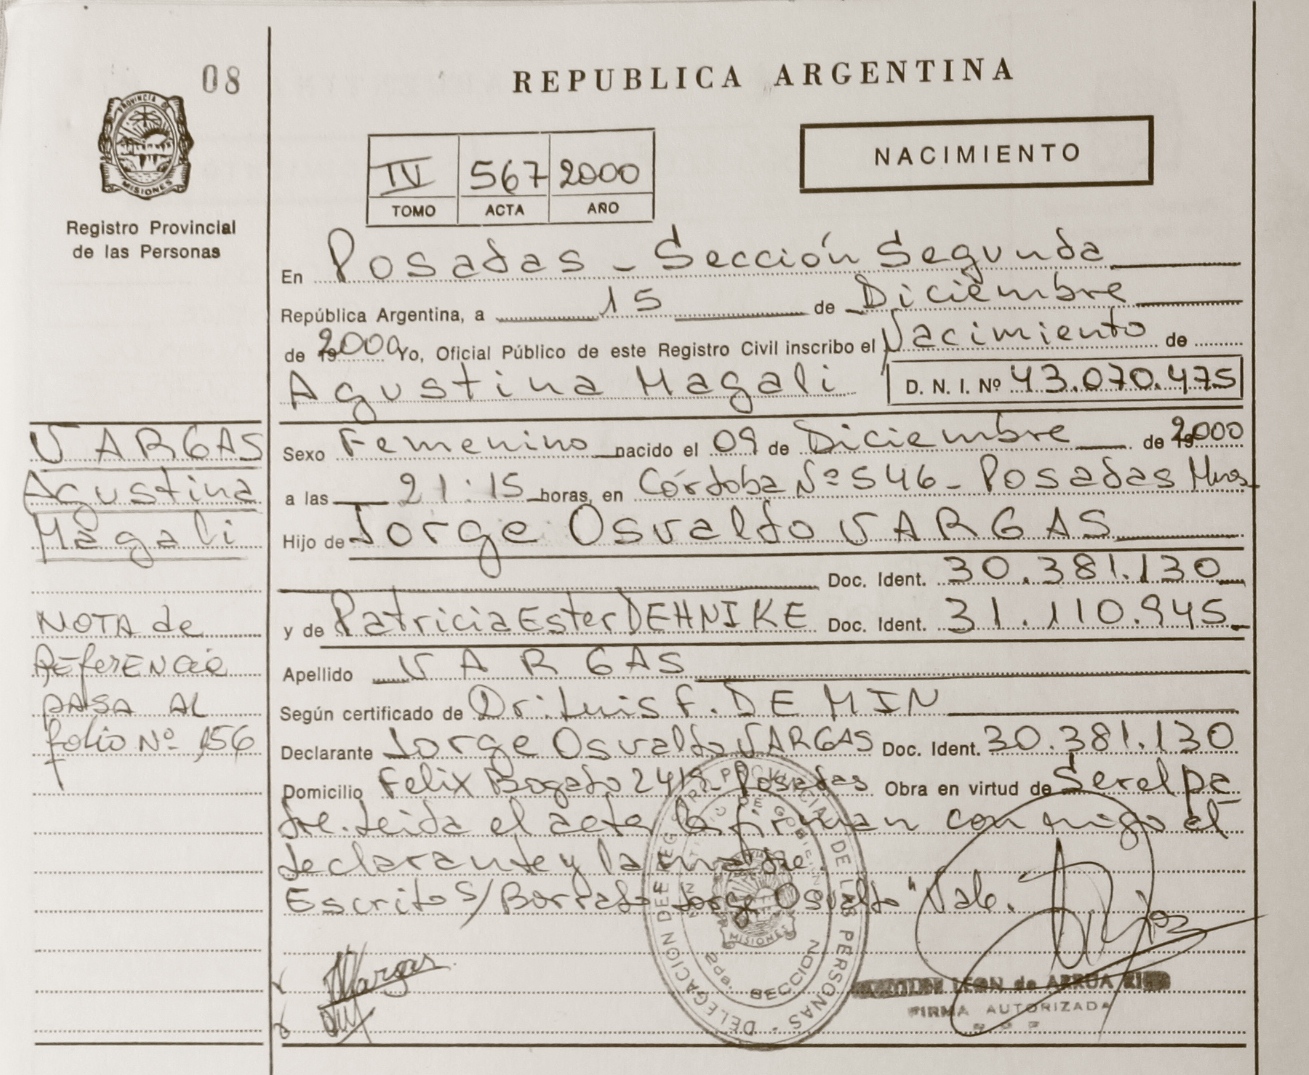 08
REPUBLICA ARGENTINA
PROVINCIA DE
MISIONES
Registro Provincial
de las Personas
NACIMIENTO
IV 567 2000
TOMO ACTA AÑO
En Posadas - Sección Segunda
República Argentina, a 15 de Diciembre
de 2000 Yo, Oficial Público de este Registro Civil inscribo el Nacimiento de
Agustina Magali D. N. I. Nº 43.070.475
VARGAS
Agustina
Magali
Sexo Femenino nacido el 09 de Diciembre de 2000
a las 21:15 horas, en Córdoba Nº 546 - Posadas Mnes
Hijo de Jorge Osvaldo VARGAS
Doc. Ident. 30.381.130
y de Patricia Ester DEHNIKE Doc. Ident. 31.110.945
NOTA de
REFERENCIA
PASA AL
folio Nº 156
Apellido VARGAS
Según certificado de Dr. Luis F. DE MIN
Declarante Jorge Osvaldo VARGAS Doc. Ident. 30.381.130
Domicilio Felix Bogado Posadas Obra en virtud de Ser el pa
dre. Leida el acta la firman conmigo el
declarante y la madre.
Escrito S/Borrado "Jorge Osvaldo" Vale.
DELEGACION DE REGISTRO PROVINCIAL DE LAS PERSONAS
MISIONES
2da. SECCION
Vargas
LEON de ARRUA
FIRMA AUTORIZADA